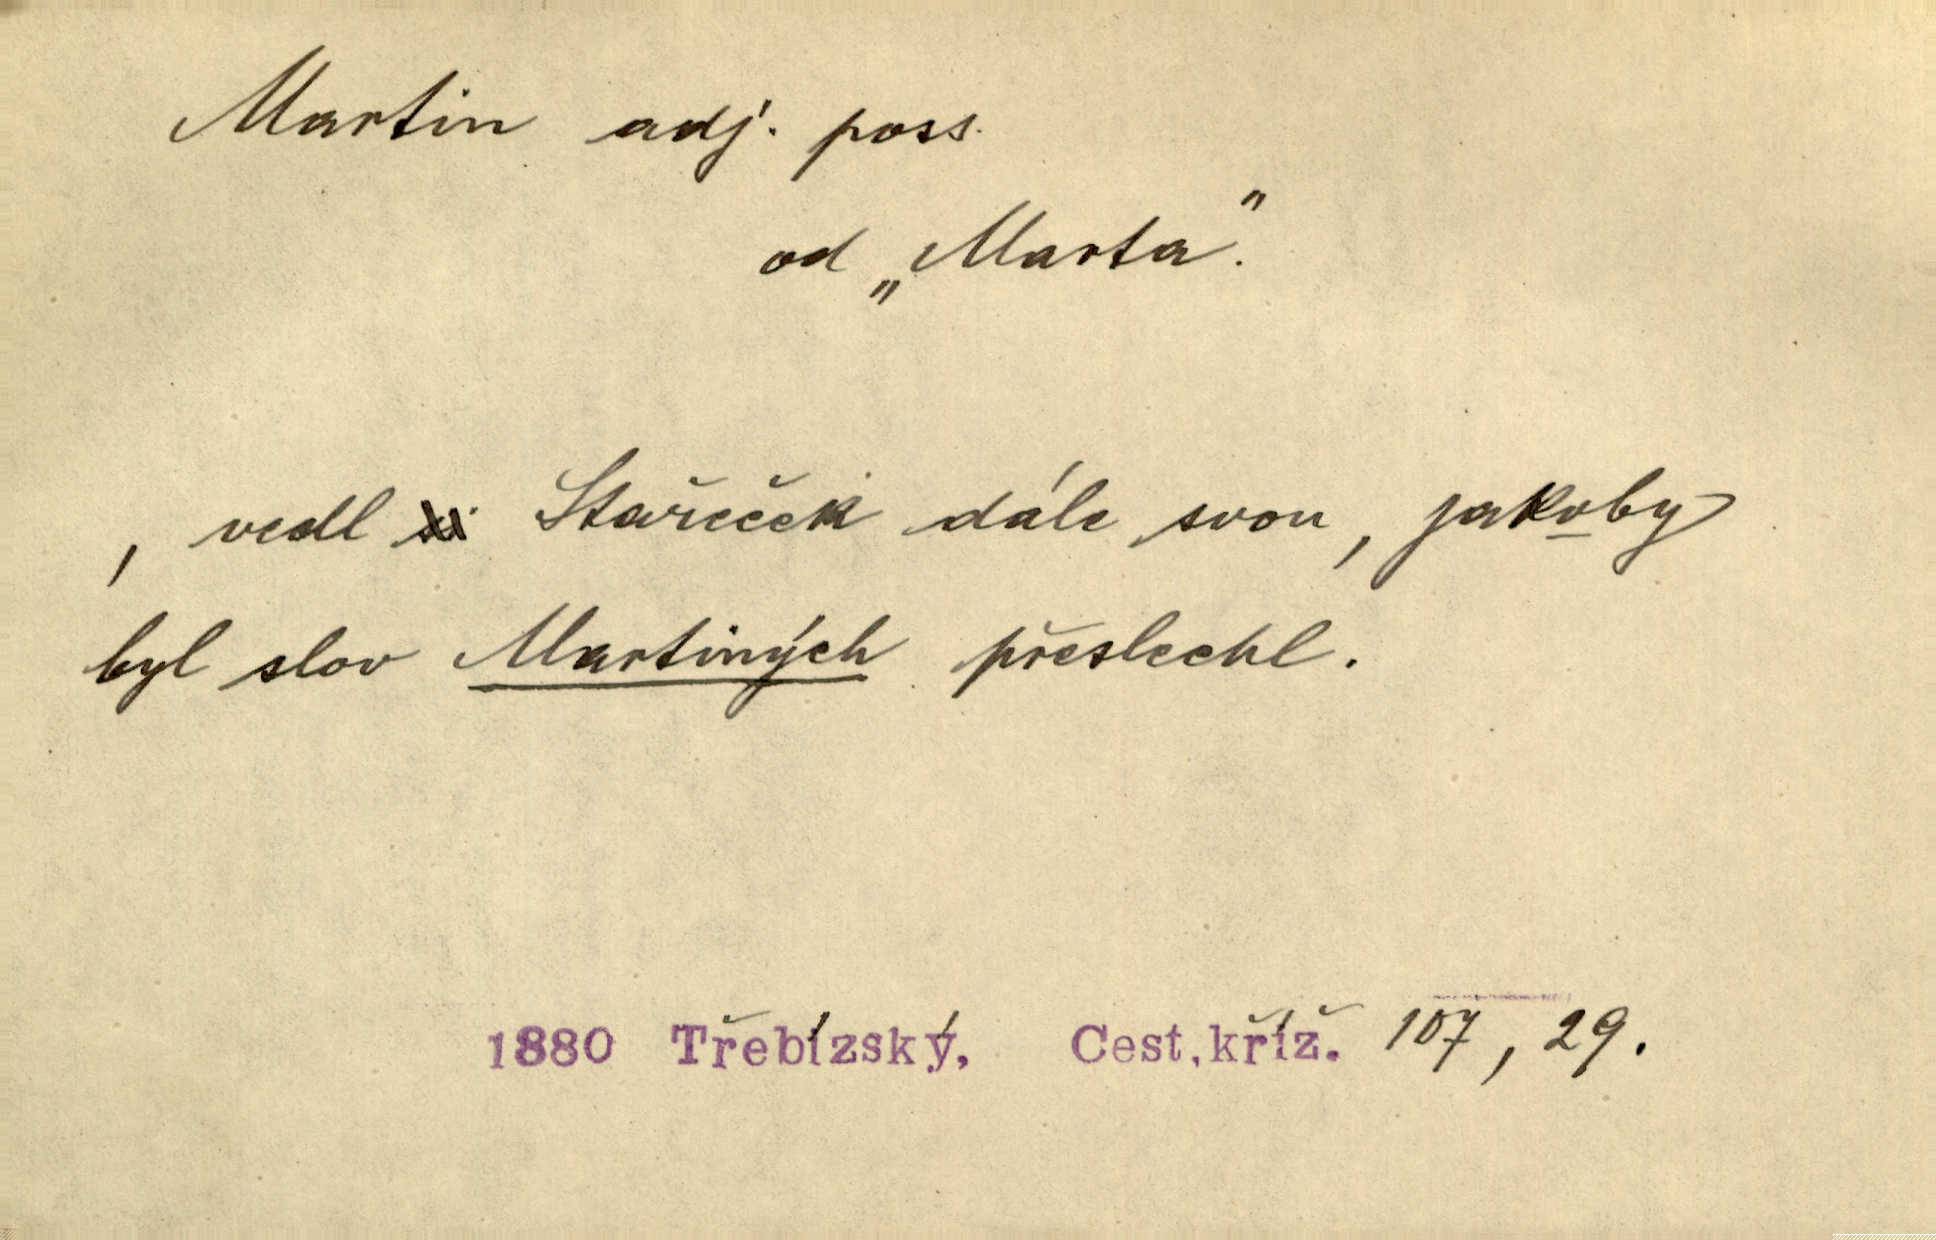 Martin adj. poss.
od „Marta".
, vedl Stařeček dále svou, jakoby
byl slov Martiných přeslechl.
1880 Třebízský, Cest.kříž. 107, 29.